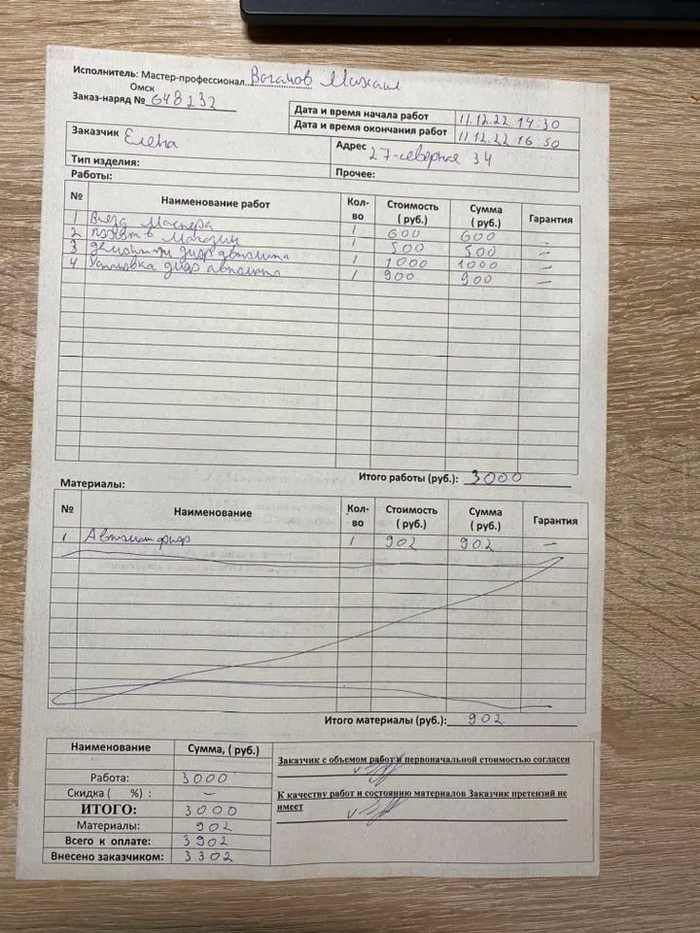 Исполнитель: Мастер-профессионал Вогачов Михаил
Омск
Заказ-наряд № 648232
Дата и время начала работ 11.12.22 14:30
Дата и время окончания работ 11.12.22 16:50
Заказчик Елена
Адрес 27-северная 34
Тип изделия:
Прочее:
Работы:
№ Наименование работ Кол-во Стоимость ( руб.) Сумма ( руб.) Гарантия
1 Выезд Мастера 1 600 600 —
2 в Магазин 1 500 500 —
3 демонтаж дифавтомата 1 1000 1000 —
4 Установка диф автомата 1 900 900 —
Итого работы (руб.): 3000
Материалы:
№ Наименование Кол-во Стоимость ( руб.) Сумма ( руб.) Гарантия
1 Автомат диф 1 902 902 —
Итого материалы (руб.): 902
Наименование Сумма, ( руб.)
Работа: 3000
Скидка ( %) : —
ИТОГО: 3000
Материалы: 902
Всего к оплате: 3902
Внесено заказчиком: 3302
Заказчик с объемом работ и первоначальной стоимостью согласен
К качеству работ и состоянию материалов Заказчик претензий не
имеет